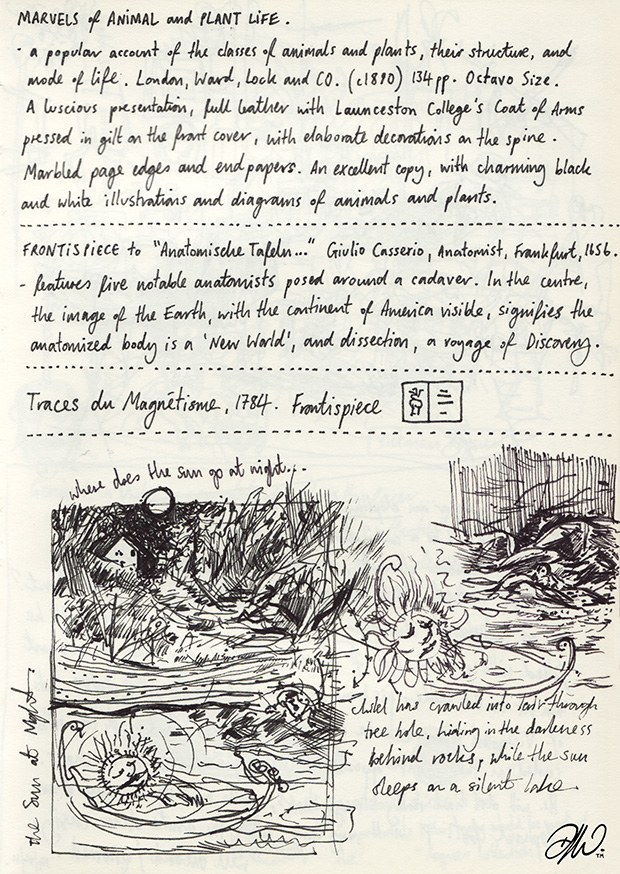 MARVELS OF ANIMAL and PLANT LIFE.
- a popular account of the classes of animals and plants, their structure, and
mode of life. London, Ward, Lock and CO. (c1890) 134pp. Octavo Size.
A luscious presentation, full leather with Launceston College's Coat of Arms
pressed in gilt on the front cover, with elaborate decorations on the spine.
Marbled page edges and endpapers. An excellent copy, with charming black
and white illustrations and diagrams of animals and plants.
FRONTISPIECE to "Anatomische Tafeln..." Giulio Casserio, Anatomist, Frankfurt, 1656.
- features five notable anatomists posed around a cadaver. In the centre,
the image of the Earth, with the continent of America visible, signifies the
anatomized body is a 'New World', and dissection, a voyage of Discovery.
Traces du Magnétisme, 1784. Frontispiece
where does the sun go at night...
the Sun at Night.
child has crawled into lair through
tree hole, hiding in the darkness
behind rocks, while the sun
sleeps on a silent lake.